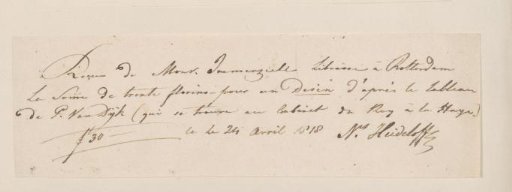 Reçu de Mons. Immerzeel Libraire à Rotterdam
la Some de trente florins pour un Dessin d'après le tableau
de P. Van Dijk (qui se trouve au Cabinet du Roy à la Haye.)
f 30 le 24 Avril 1818 Ns Heideloff